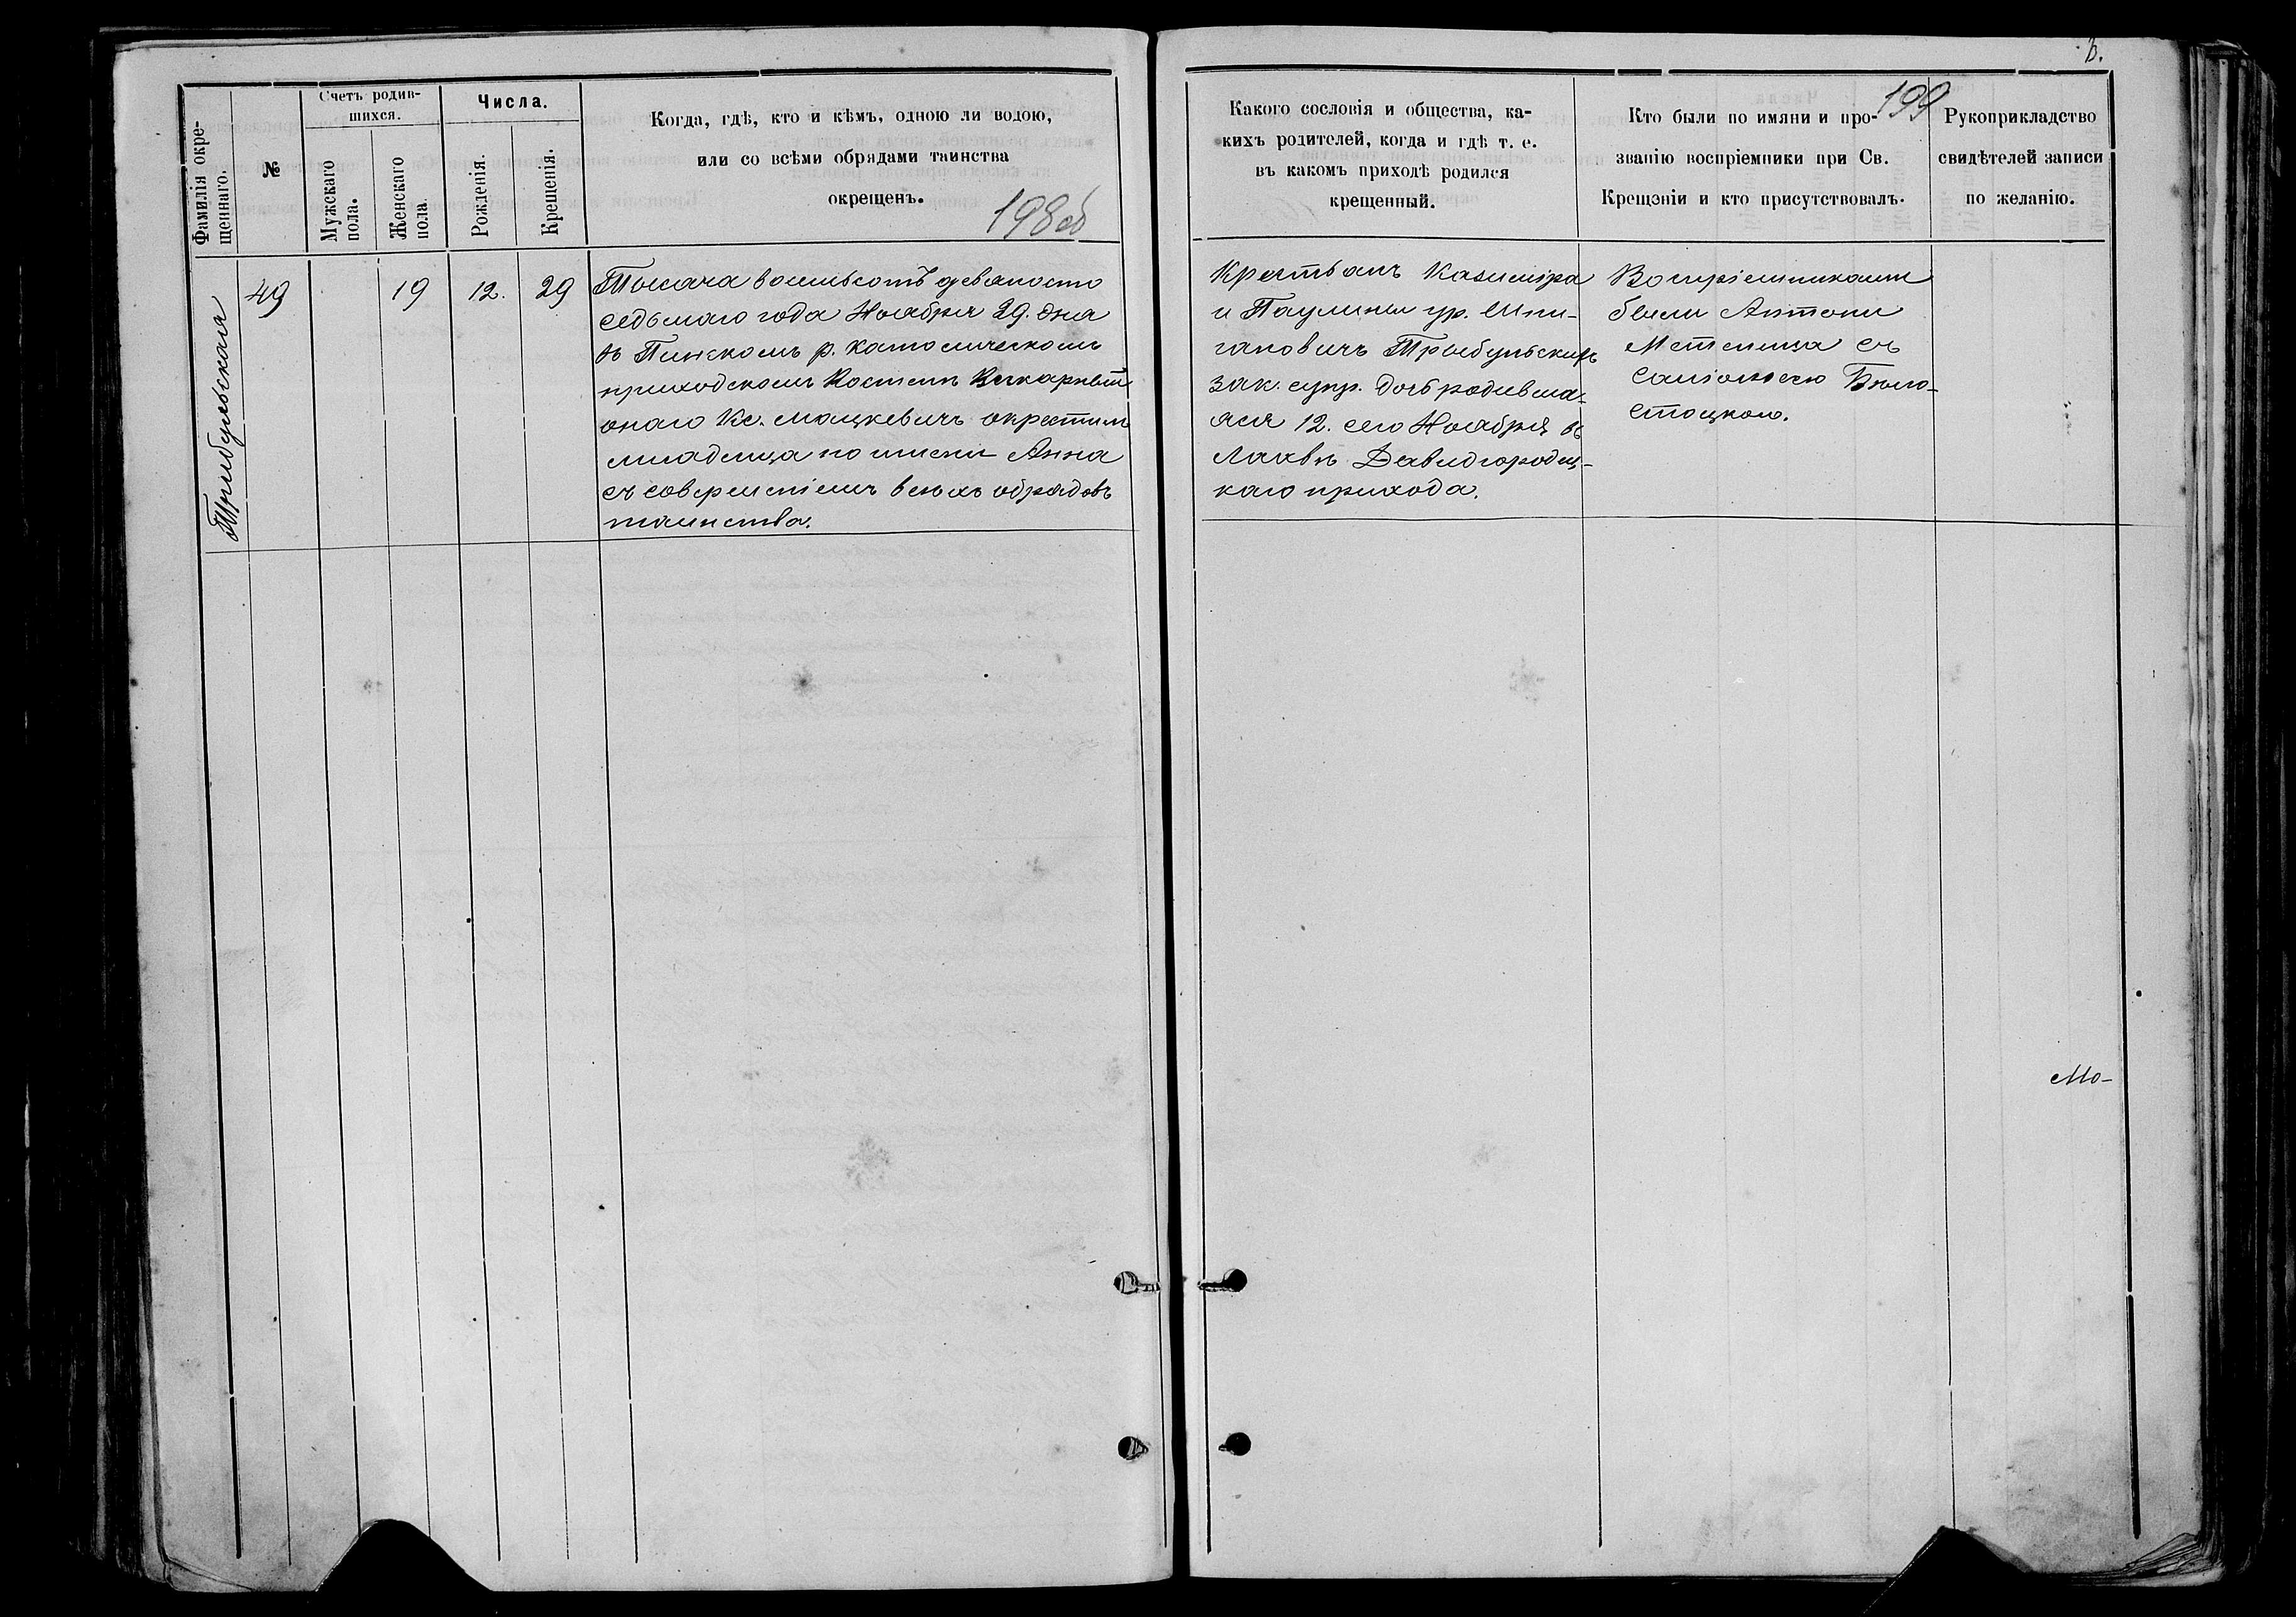 Фамилія окре-
щеннаго.
№
Счетъ родив-
шихся.
Мужскаго
пола.
Женскаго
пола.
Числа.
Рожденія.
Крещенія.
Когда, гдѣ, кто и кѣмъ, одною ли водою,
или со всѣми обрядами таинства
окрещенъ.
198об
Трибульская
49
19
12.
29
Тысяча восемьсотъ девяносто
седьмаго года Ноября 29. дня
въ Пинскомъ р. католическомъ
приходскомъ Костелѣ Викарный
онаго Кс. Мацкевичъ окрестилъ
младенца по имени Анна
съ совершеніемъ всѣхъ обрядовъ
таинства.
В.
199
Какого сословія и общества, ка-
кихъ родителей, когда и гдѣ т. е.
въ какомъ приходѣ родился
крещенный.
Кто были по имяни и про-
званію воспріемники при Св.
Крещэніи и кто присутствовалъ.
Рукоприкладство
свидѣтелей записи
по желанію.
Крестьянъ Казиміра
и Паулины ур.
гановичъ Трыбульскихъ
зак. супр. дочь родивша-
яся 12. сего Ноября въ
Лахвѣ Давидгородец-
каго прихода.
Воспріемниками
были Антони
Метелица съ
Саліомеею Бѣло-
стоцкою.
Мо-